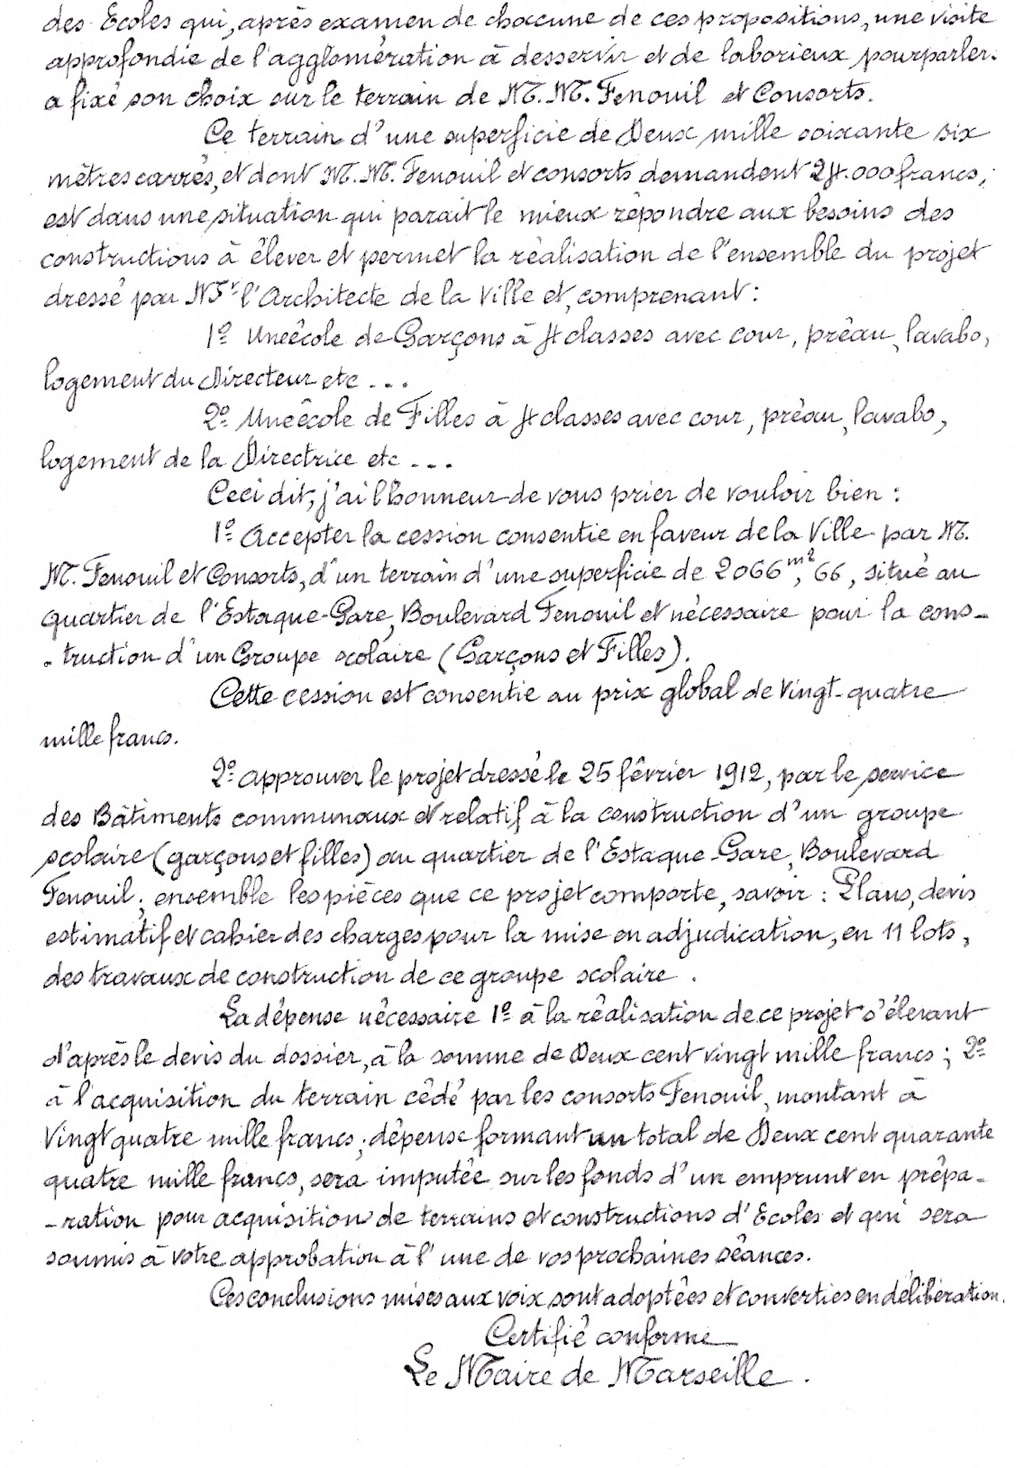 des Ecoles qui, après examen de chaccune de ces propositions, une visite
approfondie de l'agglomération à desservir et de laborieux pourparler.
a fixé son choix sur le terrain de M. M. Fenouil et Consorts.
Ce terrain d'une superficie de Deux mille soixante six
mètres carrés, et dont M. M. Fenouil et consorts demandent 24.000 francs,
est dans une situation qui parait le mieux répondre aux besoins des
constructions à élever et permet la réalisation de l'ensemble du projet
dressé par Mr l'Architecte de la Ville et, comprenant :
1º Une école de Garçons à 4 classes avec cour, préau, lavabo,
logement du Directeur etc ...
2º Une école de Filles à 4 classes avec cour, préau, lavabo,
logement de la Directrice etc ...
Ceci dit, j'ai l'honneur de vous prier de vouloir bien :
1º Accepter la cession consentie en faveur de la Ville par M.
M. Fenouil et Consorts, d'un terrain d'une superficie de 2066m²,66, situé au
quartier de l'Estaque-Gare, Boulevard Fenouil et nécessaire pour la cons-
-truction d'un Groupe scolaire (Garçons et Filles).
Cette cession est consentie au prix global de Vingt-quatre
mille francs.
2º approuver le projet dressé le 25 février 1912, par le service
des Bâtiments communaux et relatif à la construction d'un groupe
scolaire (garçons et filles) au quartier de l'Estaque-Gare, Boulevard
Fenouil ; ensemble les pièces que ce projet comporte, savoir : Plans, devis
estimatif et cahier des charges pour la mise en adjudication, en 11 lots,
des travaux de construction de ce groupe scolaire.
La dépense nécessaire 1º à la réalisation de ce projet s'élevant
d'après le devis du dossier, à la somme de Deux cent vingt mille francs ; 2º
à l'acquisition du terrain cédé par les consorts Fenouil, montant à
Vingt quatre mille francs ; dépense formant un total de Deux cent quarante
quatre mille francs, sera imputée sur les fonds d'un emprunt en prépa-
-ration pour acquisition de terrains et constructions d'Ecoles et qui sera
soumis à votre approbation à l'une de vos prochaines séances.
Ces conclusions mises aux voix sont adoptées et converties en délibération.
Certifié conforme
Le Maire de Marseille.